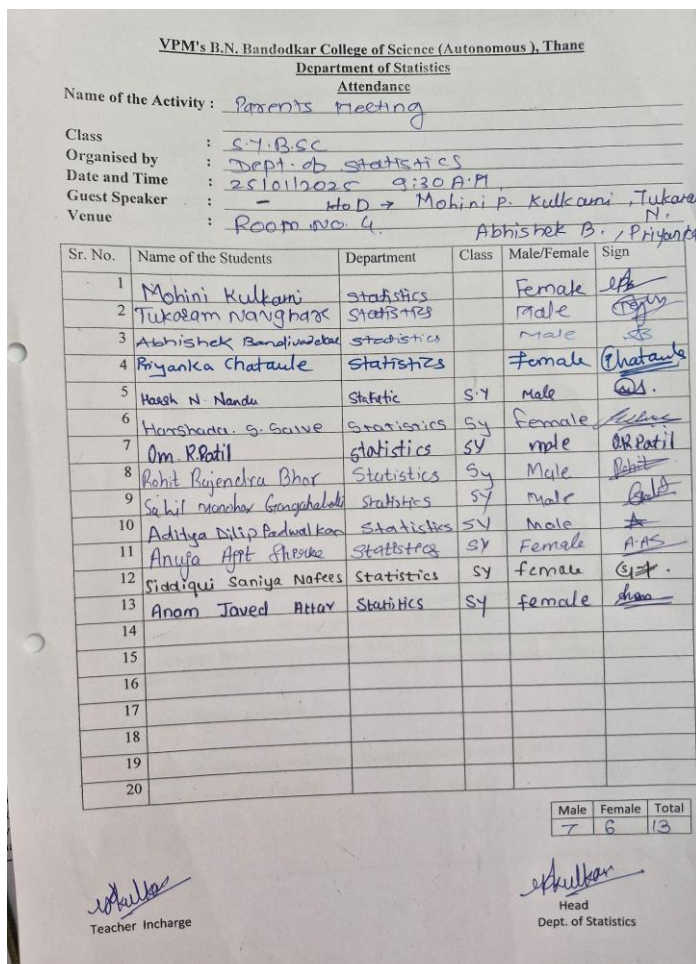 VPM's B.N. Bandodkar College of Science (Autonomous ), Thane
Department of Statistics
Attendance
Name of the Activity : Parents Meeting
Class : S.Y.B.SC
Organised by : Dept. of Statistics
Date and Time : 25/01/2025 9:30 A.M
Guest Speaker : - HoD → Mohini P. Kulkarni, Tukaram
N.
Venue : Room No. 4. Abhishek B., Priyanka
Sr. No. Name of the Students Department Class Male/Female Sign
1 Mohini Kulkarni Statistics Female
2 Tukaram Navghare Statistics Male
3 Abhishek Bandivadekar Statistics Male
4 Priyanka Chataule Statistics Female Chataule
5 Harsh N. Nandu Statistic S.Y Male
6 Harshada. S. Salve Statistics Sy Female
7 Om. R. Patil Statistics SY male O.R Patil
8 Rohit Rajendra Bhor Statistics Sy Male Rohit
9 Sahil Manohar Statistics SY Male
10 Aditya Dilip Padwalkar Statistics SY Male
11 Anuja Ajit Statistics SY Female A.AS
12 Siddiqui Saniya Nafees Statistics SY female
13 Anam Javed Attar Statistics SY female
14
15
16
17
18
19
20
Male Female Total
7 6 13
Teacher Incharge
Head
Dept. of Statistics